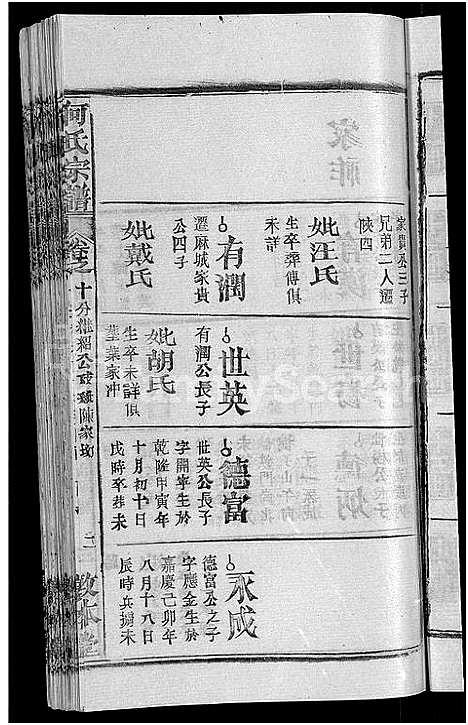 何氏宗譜
卷之
家貴公三子
兄弟二人遷
陝四
妣汪氏
生卒葬傳俱
未詳
有潤
遷麻城家貴
公四子
妣戴氏
世英
有潤公長子
妣胡氏
生卒未詳俱
葬葉家冲
德富
世英公長子
字開宰生於
乾隆甲寅年
十月初十日
戌時卒葬未
永成
德富公之子
字應金生於
嘉慶己卯年
八月十八日
辰時兵擄未
二
敦本堂